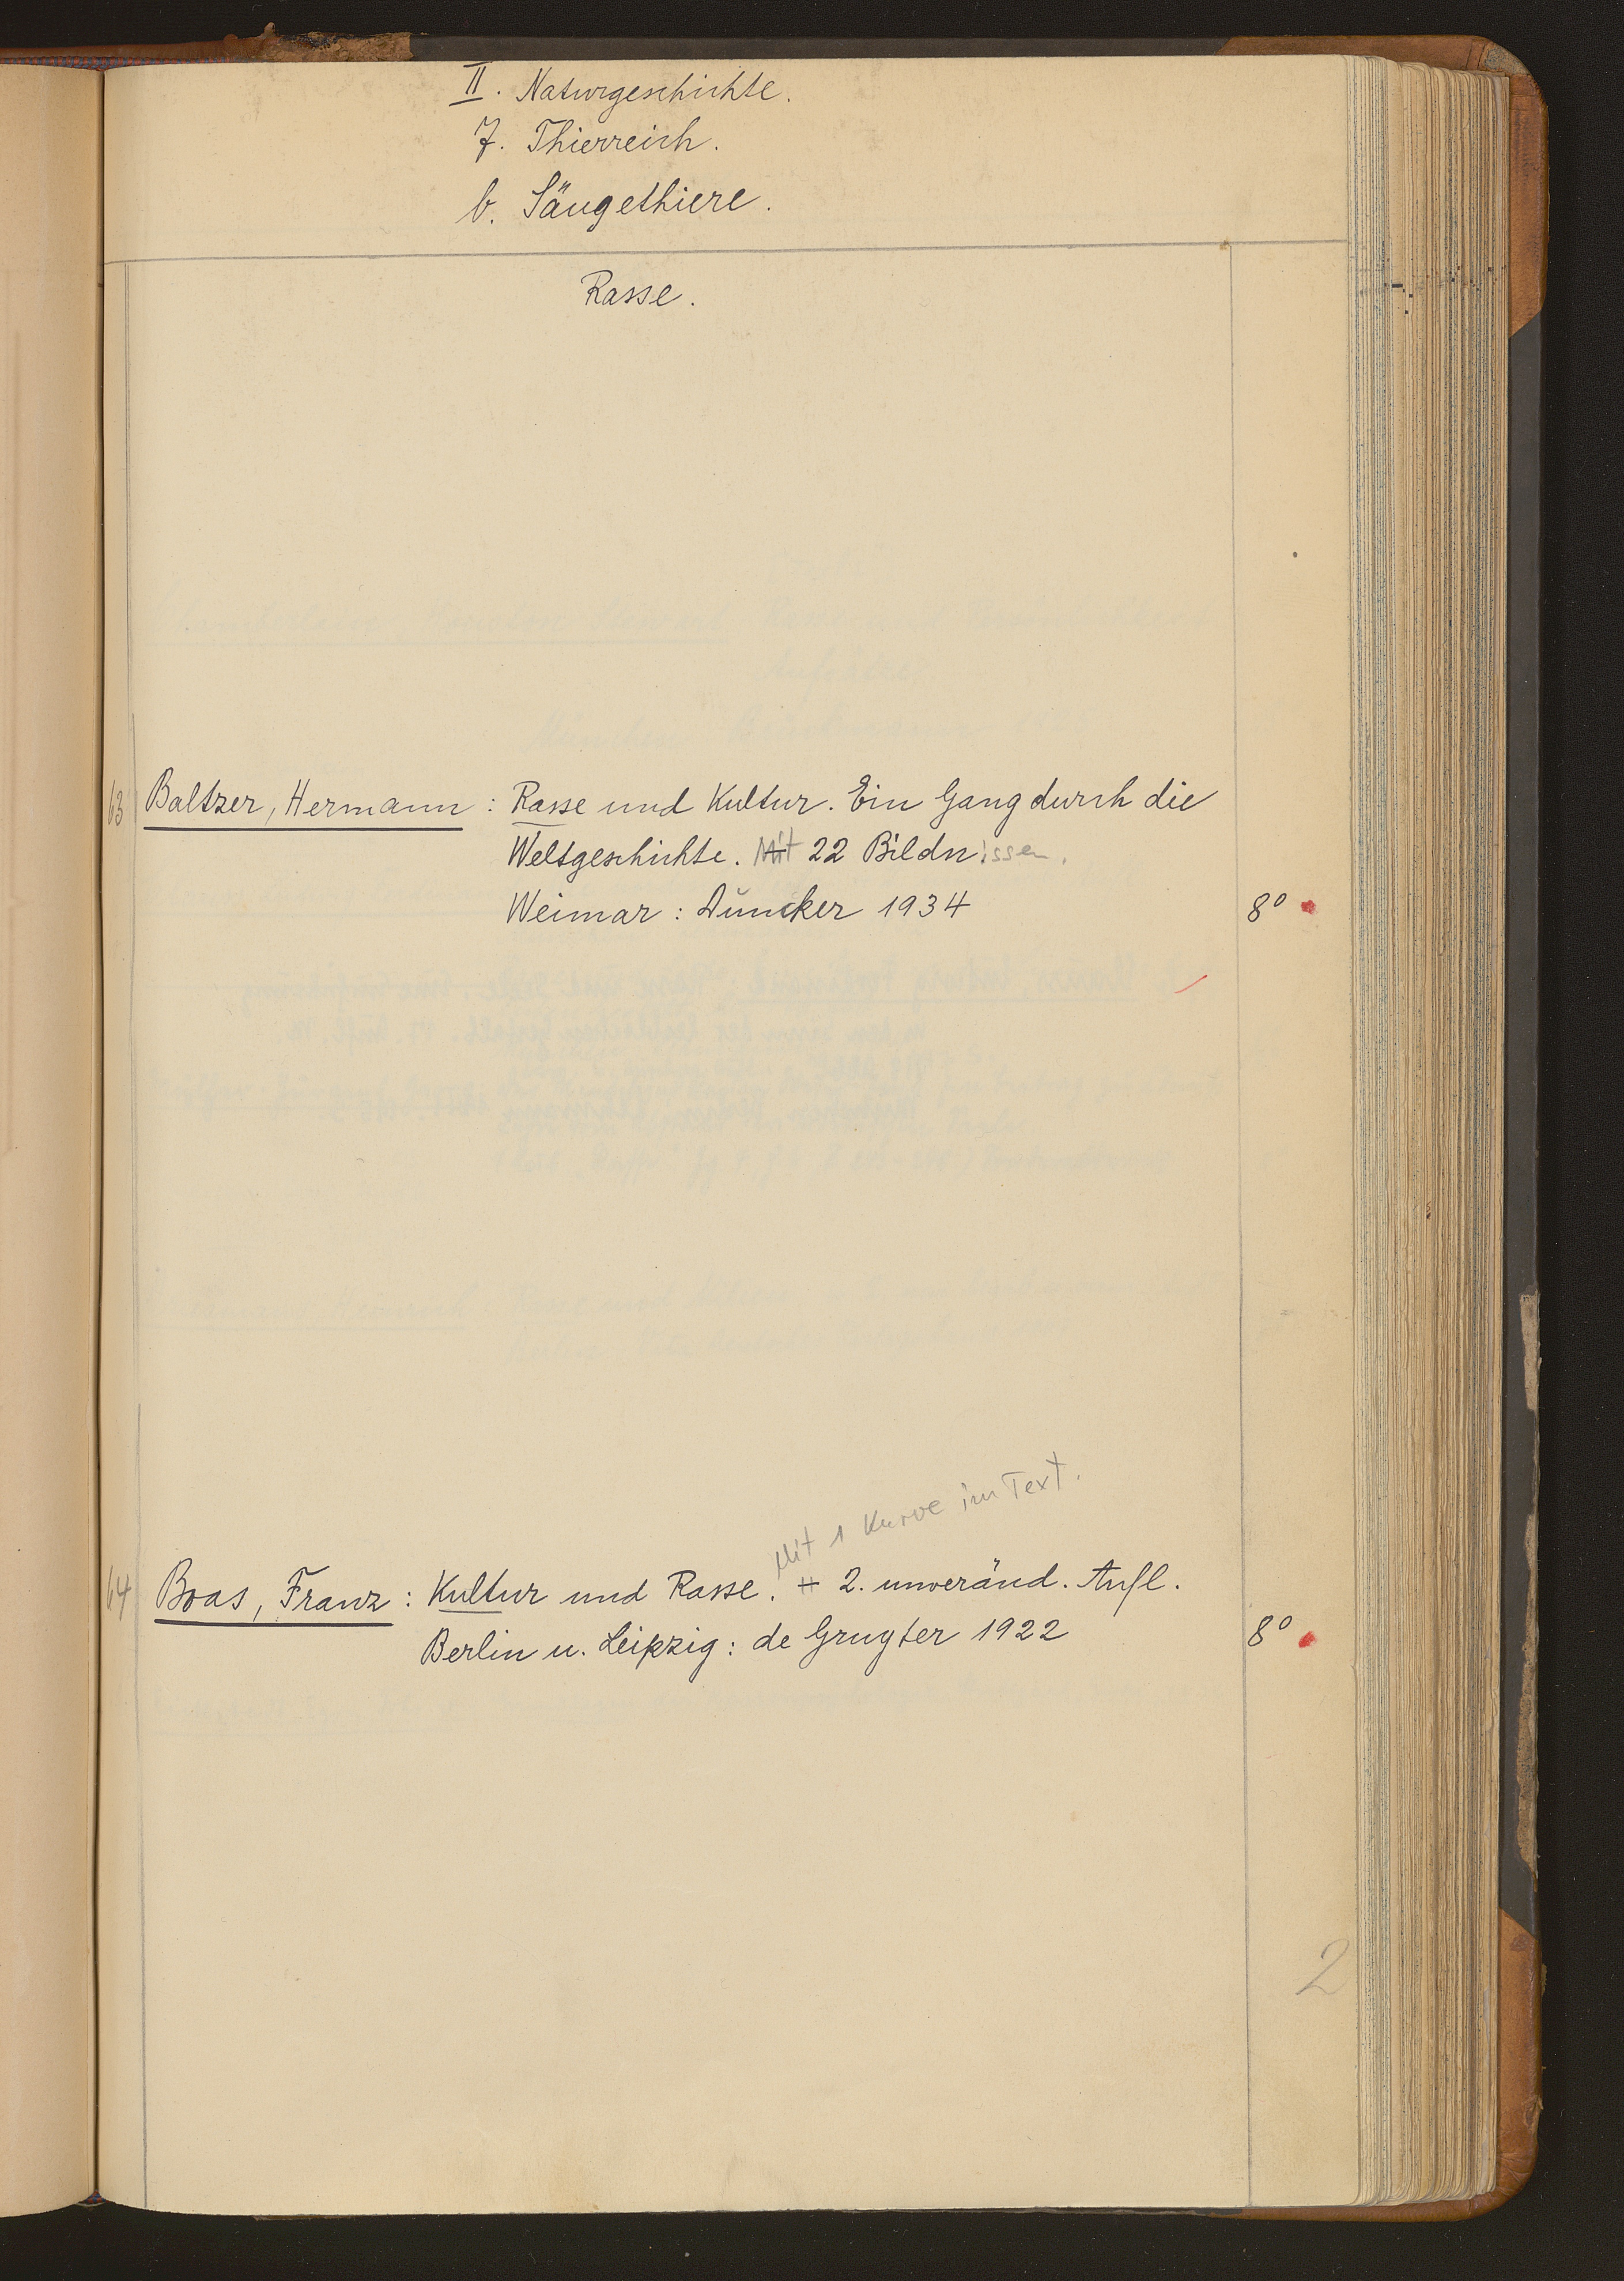 II. Naturgeschichte.
7. Thierreich.
b. Säugethiere.
Rasse.
63 Baltzer, Hermann: Rasse und Kultur. Ein Gang durch die
Weltgeschichte. Mit 22 Bildnissen.
Weimar: Duncker 1934 8°
Mit 1 Kurve im Text.
64 Boas, Franz: Kultur und Rasse. 2. unveränd. Aufl.
Berlin u. Leipzig: de Gruyter 1922 8°
2